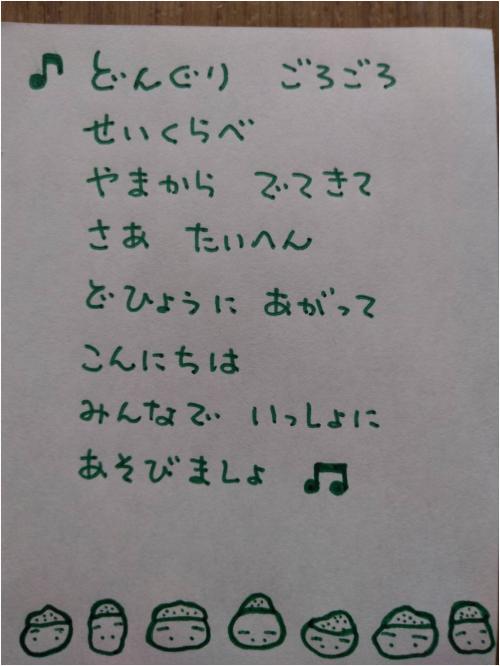 ♪ どんぐり ごろごろ
せいくらべ
やまから でてきて
さあ たいへん
どひょうに あがって
こんにちは
みんなで いっしょに
あそびましょ ♫